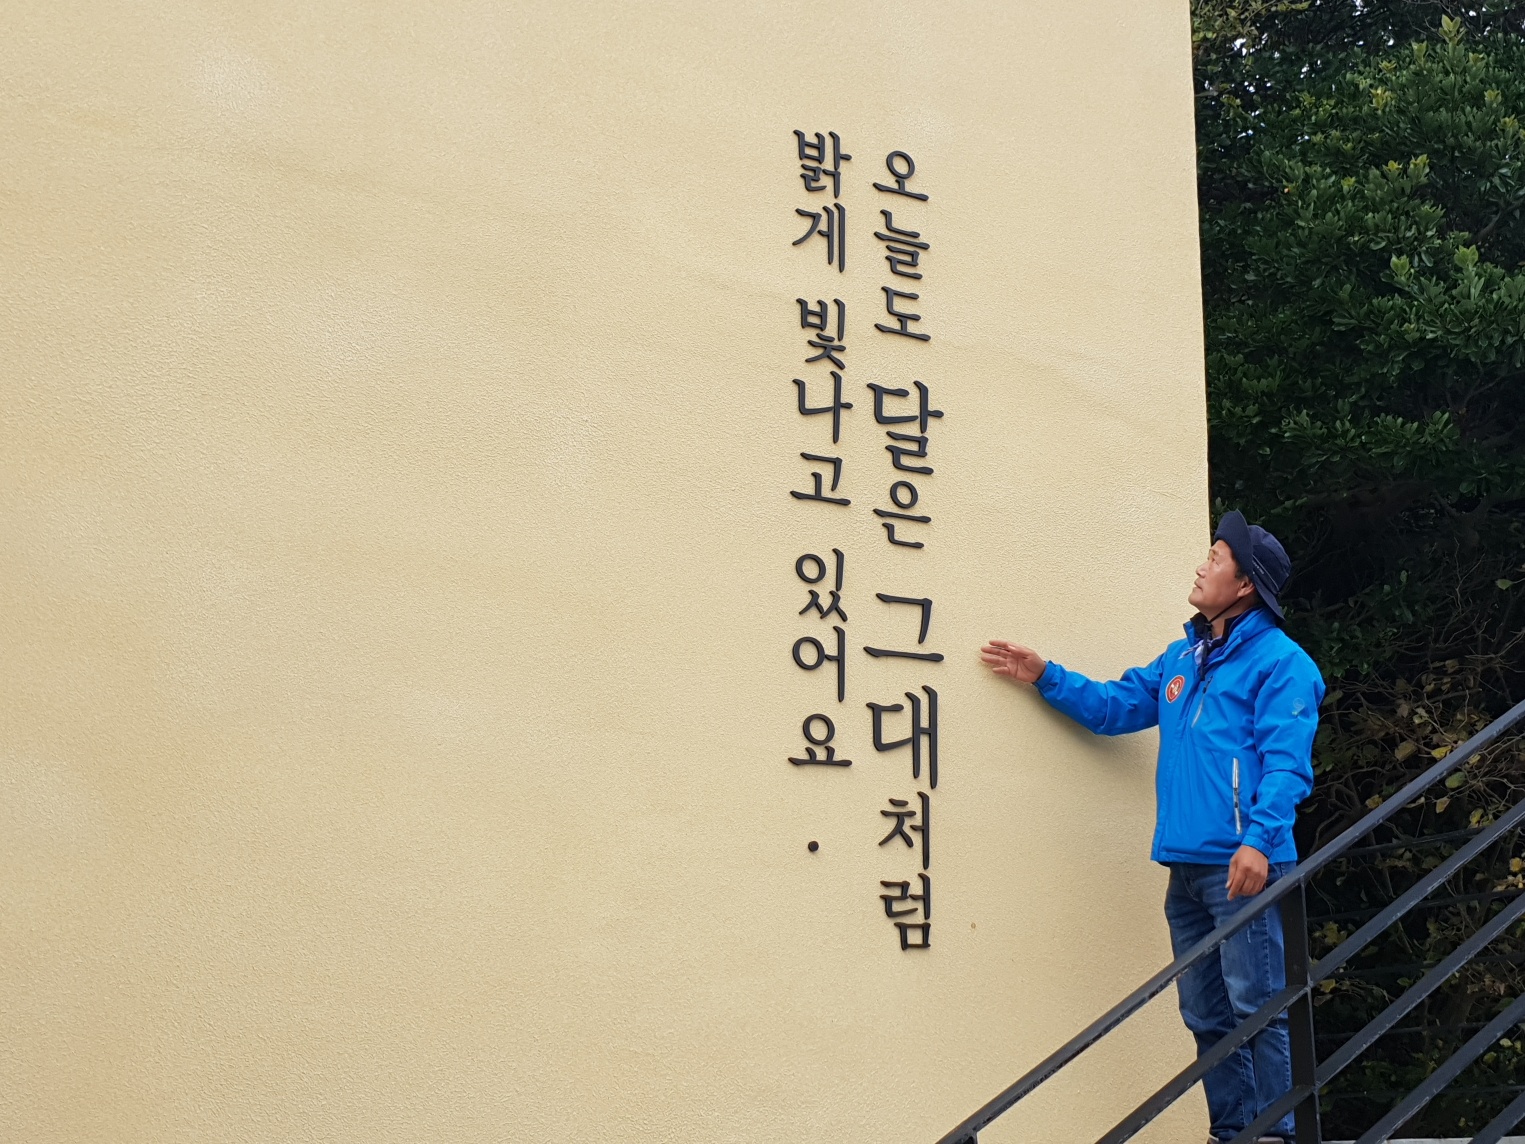 오늘도 달은 그대처럼
밝게 빛나고 있어요.